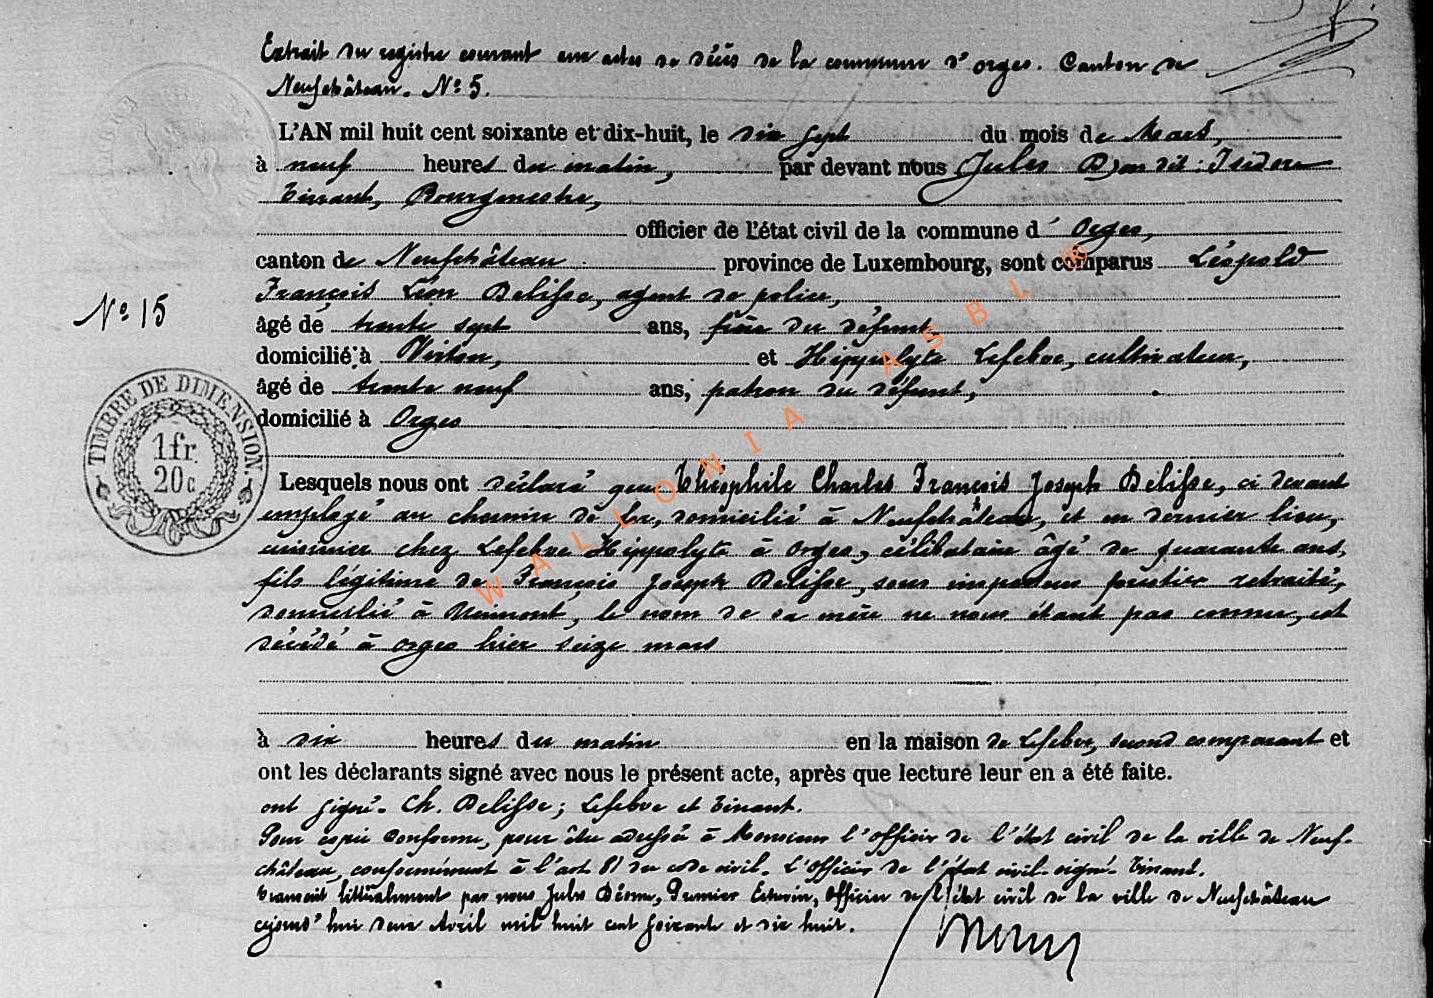 Extrait du registre courant aux actes de décès de la commune d'orges. Canton de
Neufchâteau. N° 5.
L'AN mil huit cent soixante et dix-huit, le dix sept du mois de Mars,
à neuf heures du matin, par devant nous Jules dit: Isidore
Tinant, Bourgmestre,
officier de l'état civil de la commune d' Orges,
canton de Neufchâteau province de Luxembourg, sont comparus Léopold
François Léon Delisse, agent de police,
N° 15
âgé de trente sept ans, frère du défunt,
domicilié à Virton, et Hippolyte Lefebve, cultivateur,
âgé de trente neuf ans, patron du défunt,
domicilié à Orges
TIMBRE DE DIMENSION.
1 fr.
20 c
Lesquels nous ont déclaré que Théophile Charles François Joseph Delisse, ci devant
employé au chemin de fer, domicilié à Neufchâteau, et en dernier lieu,
chez Lefebve Hippolyte à Orges, célibataire âgé de quarante ans,
fils légitime de François Joseph Delisse, sous inspecteur forestier retraité,
domicilié à Neumont, le nom de sa mère ne nous étant pas connu, est
décédé à Orges hier seize mars
à six heures du matin en la maison de Lefebve, second comparant et
ont les déclarants signé avec nous le présent acte, après que lecture leur en a été faite.
ont signé. Ch. Delisse; Lefebve et Tinant.
Pour copie conforme, pour être adressé à Monsieur l'officier de l'état civil de la ville de Neuf-
château, conformément à l'art 81 du code civil. L'officier de l'état civil signé. Tinant.
Transcrit littéralement par nous Jules Premier Echevin, Officier de l'état civil de la ville de Neufchâteau
cejourd'hui deux Avril mil huit cent soixante et dix huit.
WALLONIA ASBL ®